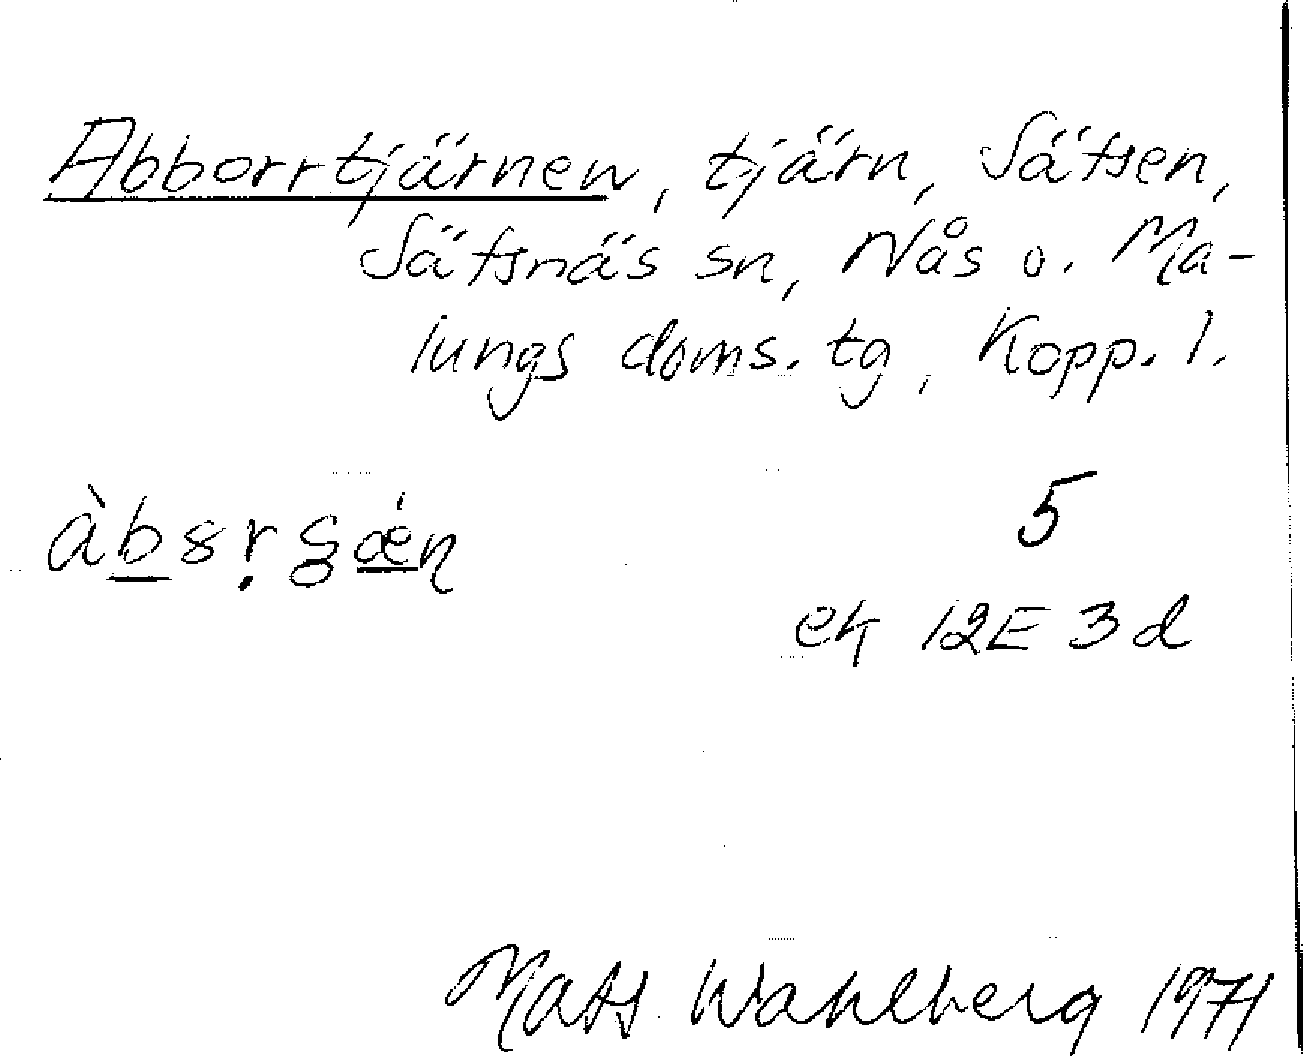 Abborrtjärnen, tjärn, Sätsen,
Sätsnäs sn, Nås o. Ma-
lungs doms. tg, Kopp. l.
5
ek 12E 3d
Mats Wahlberg 1971